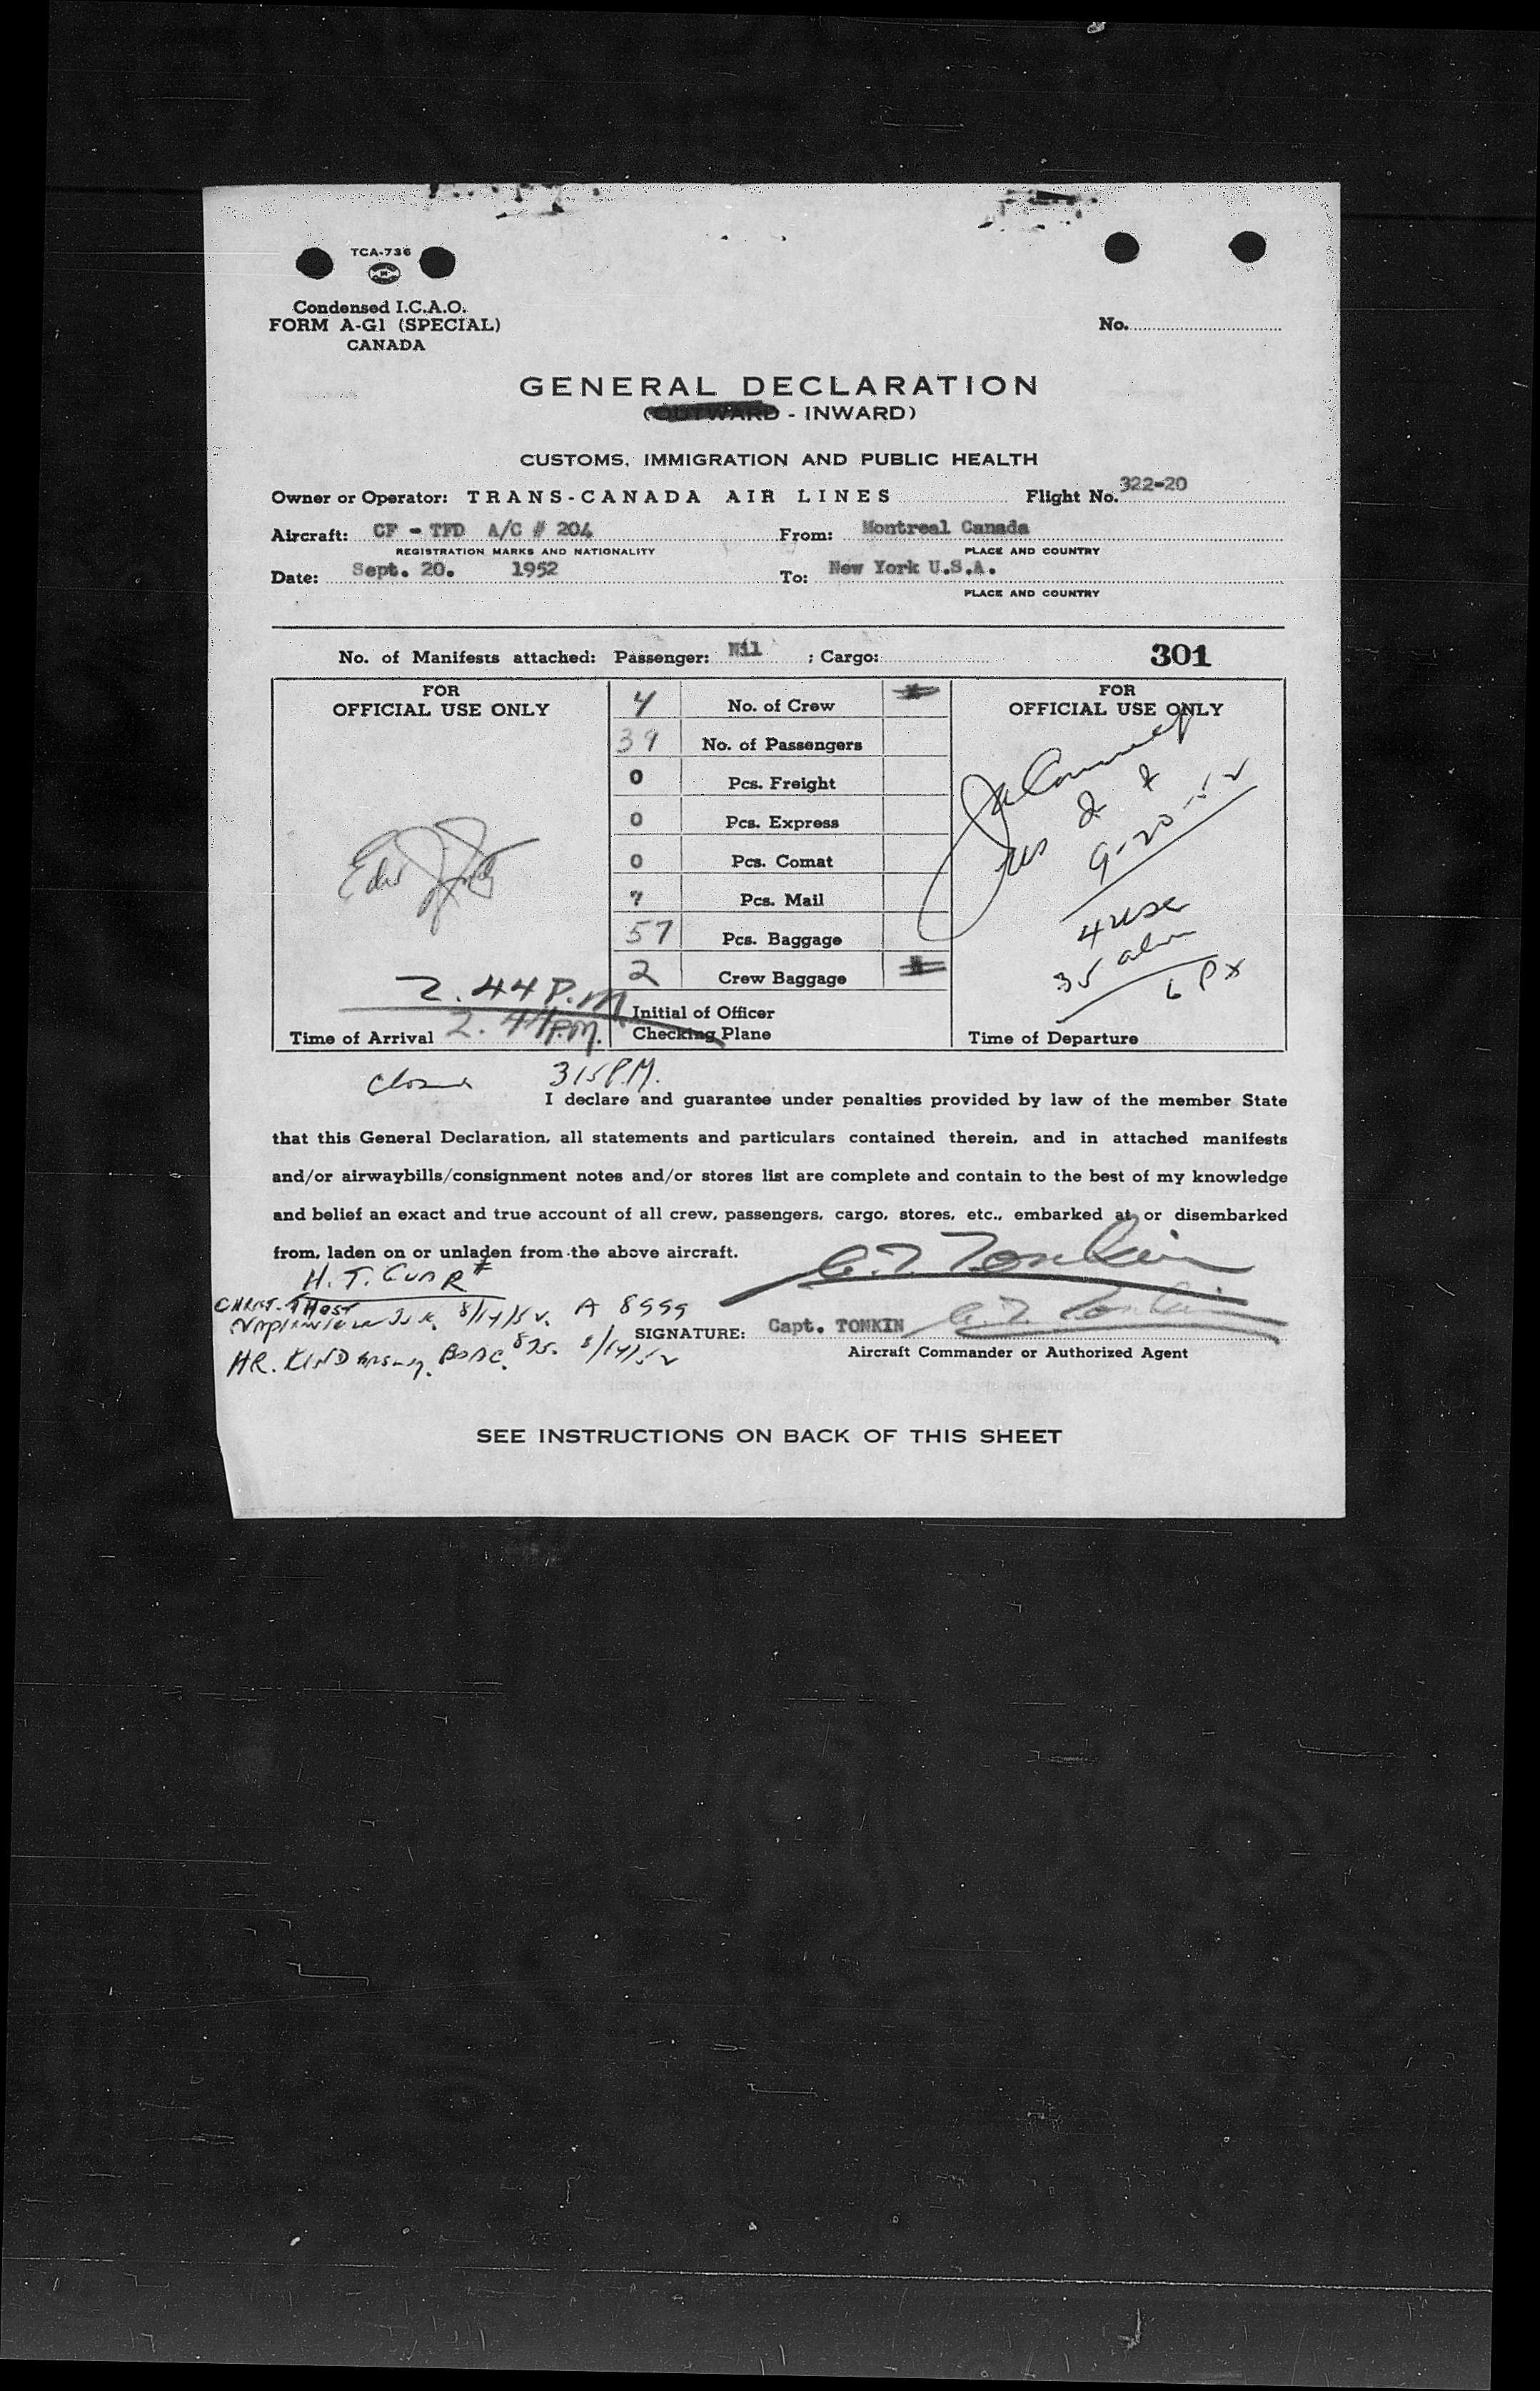 TCA-736
Condensed I.C.A.O.
FORM A-G1 (SPECIAL)
CANADA
No.
GENERAL DECLARATION
(OUTWARD - INWARD)
CUSTOMS, IMMIGRATION AND PUBLIC HEALTH
Owner or Operator: TRANS-CANADA AIR LINES Flight No. 322-20
Aircraft: CF - TFD A/C # 204 From: Montreal Canada
REGISTRATION MARKS AND NATIONALITY PLACE AND COUNTRY
Date: Sept. 20. 1952 To: New York U.S.A.
PLACE AND COUNTRY
No. of Manifests attached: Passenger: Nil ; Cargo: 301
FOR
OFFICIAL USE ONLY
4 No. of Crew
39 No. of Passengers
0 Pcs. Freight
0 Pcs. Express
0 Pcs. Comat
7 Pcs. Mail
57 Pcs. Baggage
2 Crew Baggage
Initial of Officer
Checking Plane
2.44 P.M.
Time of Arrival 2.44 P.M.
FOR
OFFICIAL USE ONLY
9-20-52
4 usc
35
6 px
Time of Departure
315 P.M.
I declare and guarantee under penalties provided by law of the member State
that this General Declaration, all statements and particulars contained therein, and in attached manifests
and/or airwaybills/consignment notes and/or stores list are complete and contain to the best of my knowledge
and belief an exact and true account of all crew, passengers, cargo, stores, etc., embarked at or disembarked
from, laden on or unladen from the above aircraft.
H. T.
8/14/52. A 8999
HR. BOAC. 8/14/52
SIGNATURE: Capt. TOMKIN
Aircraft Commander or Authorized Agent
SEE INSTRUCTIONS ON BACK OF THIS SHEET